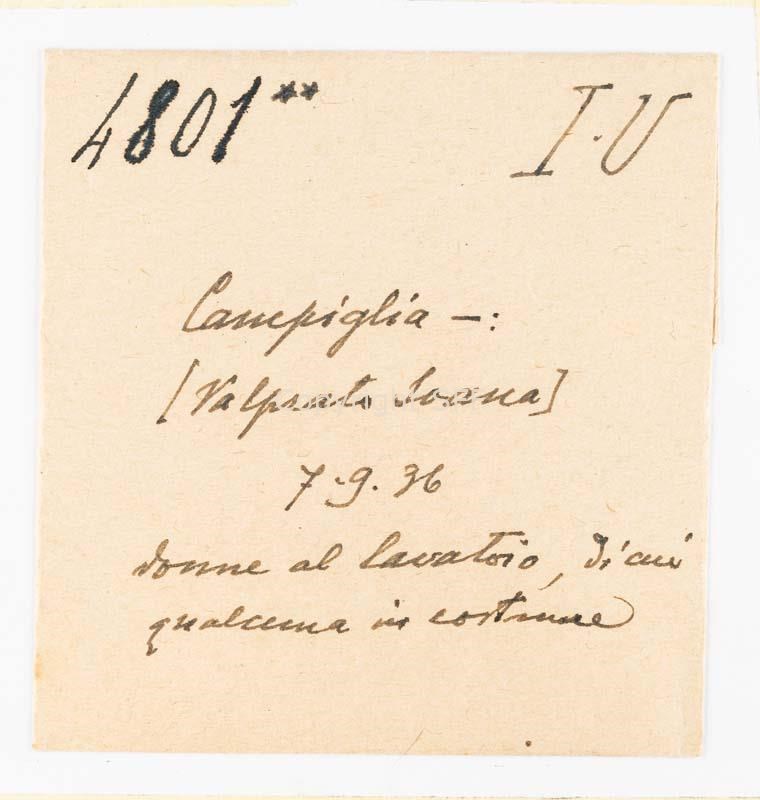 4801** I·V
Campiglia —:
[Valprato Soana]
7·9·36
donne al lavatoio, di cui
qualcuna in costume